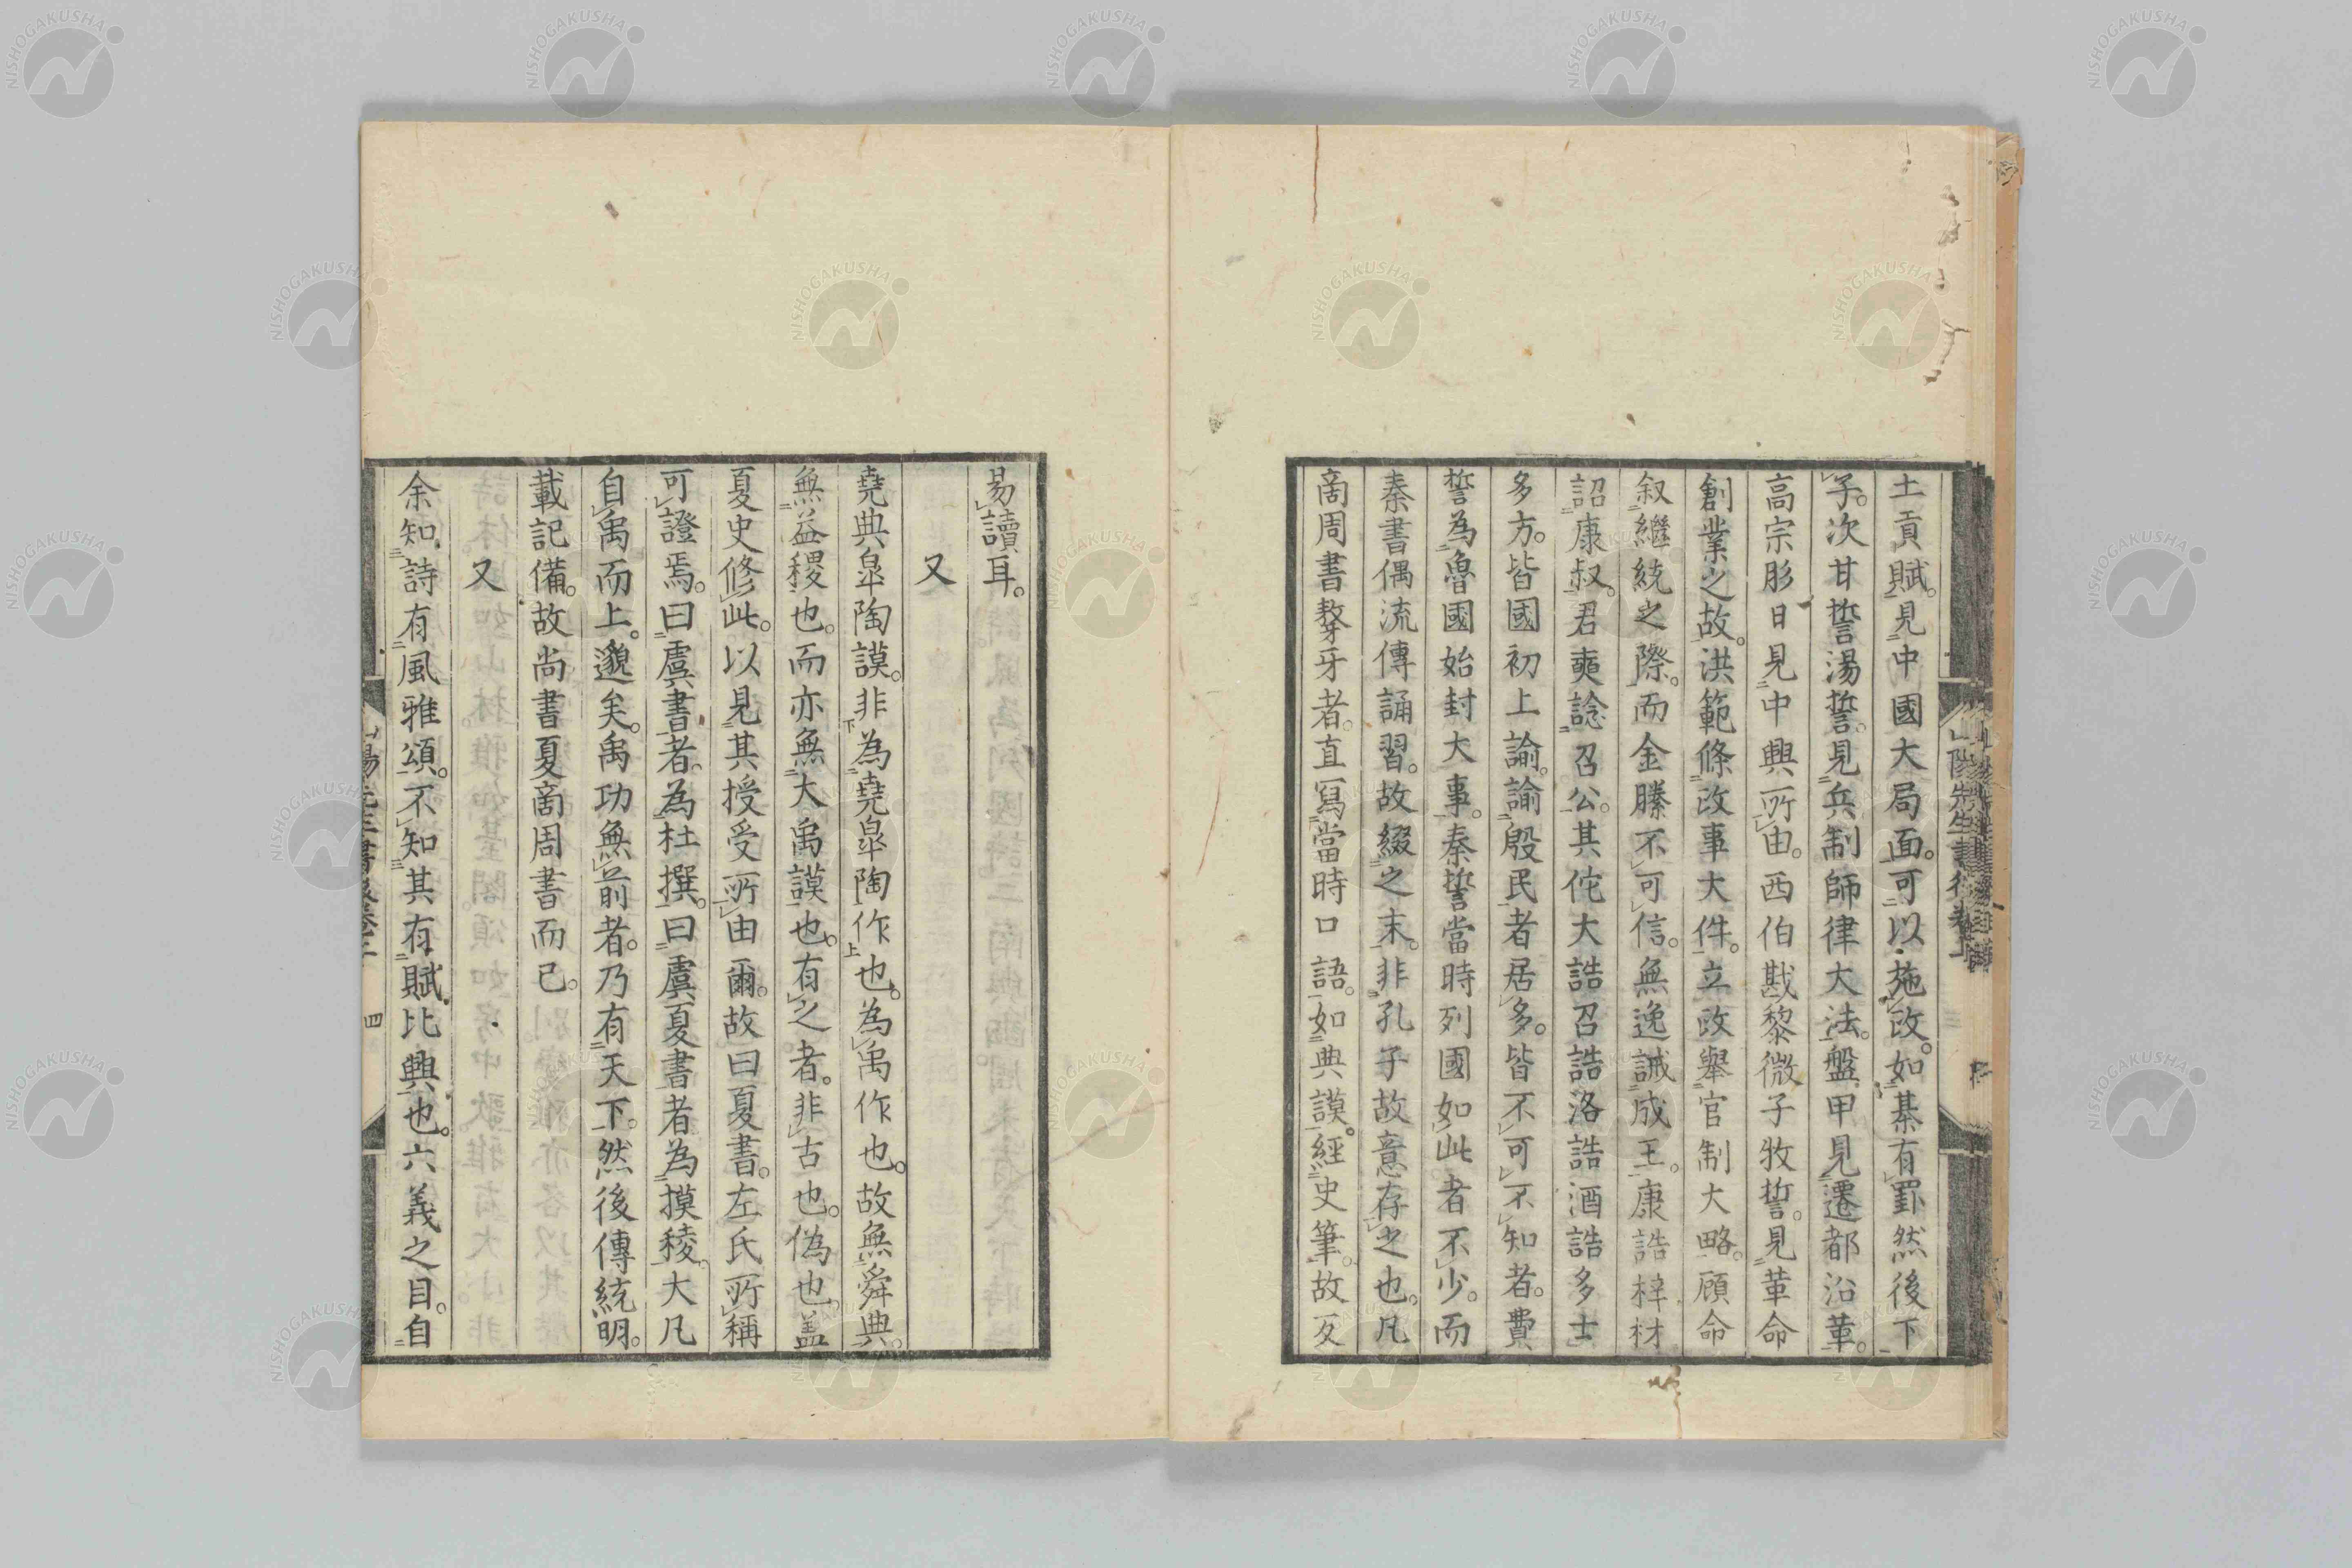 土貢賦。見中國大局面。可以施政。如棊有罫然後下
子。次甘誓湯誓。見兵制師律大法。盤甲見遷都沿革。
高宗肜日見中興所由。西伯戡黎微子牧誓。見革命
創業之故。洪範條政事大件。立政舉官制大略。顧命
叙繼統之際。而金縢不可信。無逸誡成王。康誥梓材
詔康叔。君奭諗召公。其佗大誥召誥洛誥酒誥多士
多方。皆國初上諭。諭殷民者居多。皆不可不知者。費
誓為魯國始封大事。秦誓當時列國如此者不少。而
秦書偶流傳誦習。故綴之末。非孔子故意存之也。凡
商周書聱牙者。直寫當時口語。如典謨。經史筆。故反
易讀耳。
又
堯典皐陶謨。非為堯皐陶作也。為禹作也。故無舜典。
無益稷也。而亦無大禹謨也。有之者。非古也。偽也。蓋
夏史修此。以見其授受所由爾。故曰夏書。左氏所稱
可證焉。曰虞書者。為杜撰。曰虞夏書者為摸稜。大凡
自禹而上。邈矣。禹功無前者。乃有天下。然後傳統明。
載記備。故尚書夏商周書而已。
又
余知詩有風雅頌。不知其有賦比興也。六義之目。自
四
NISHOGAKUSHA